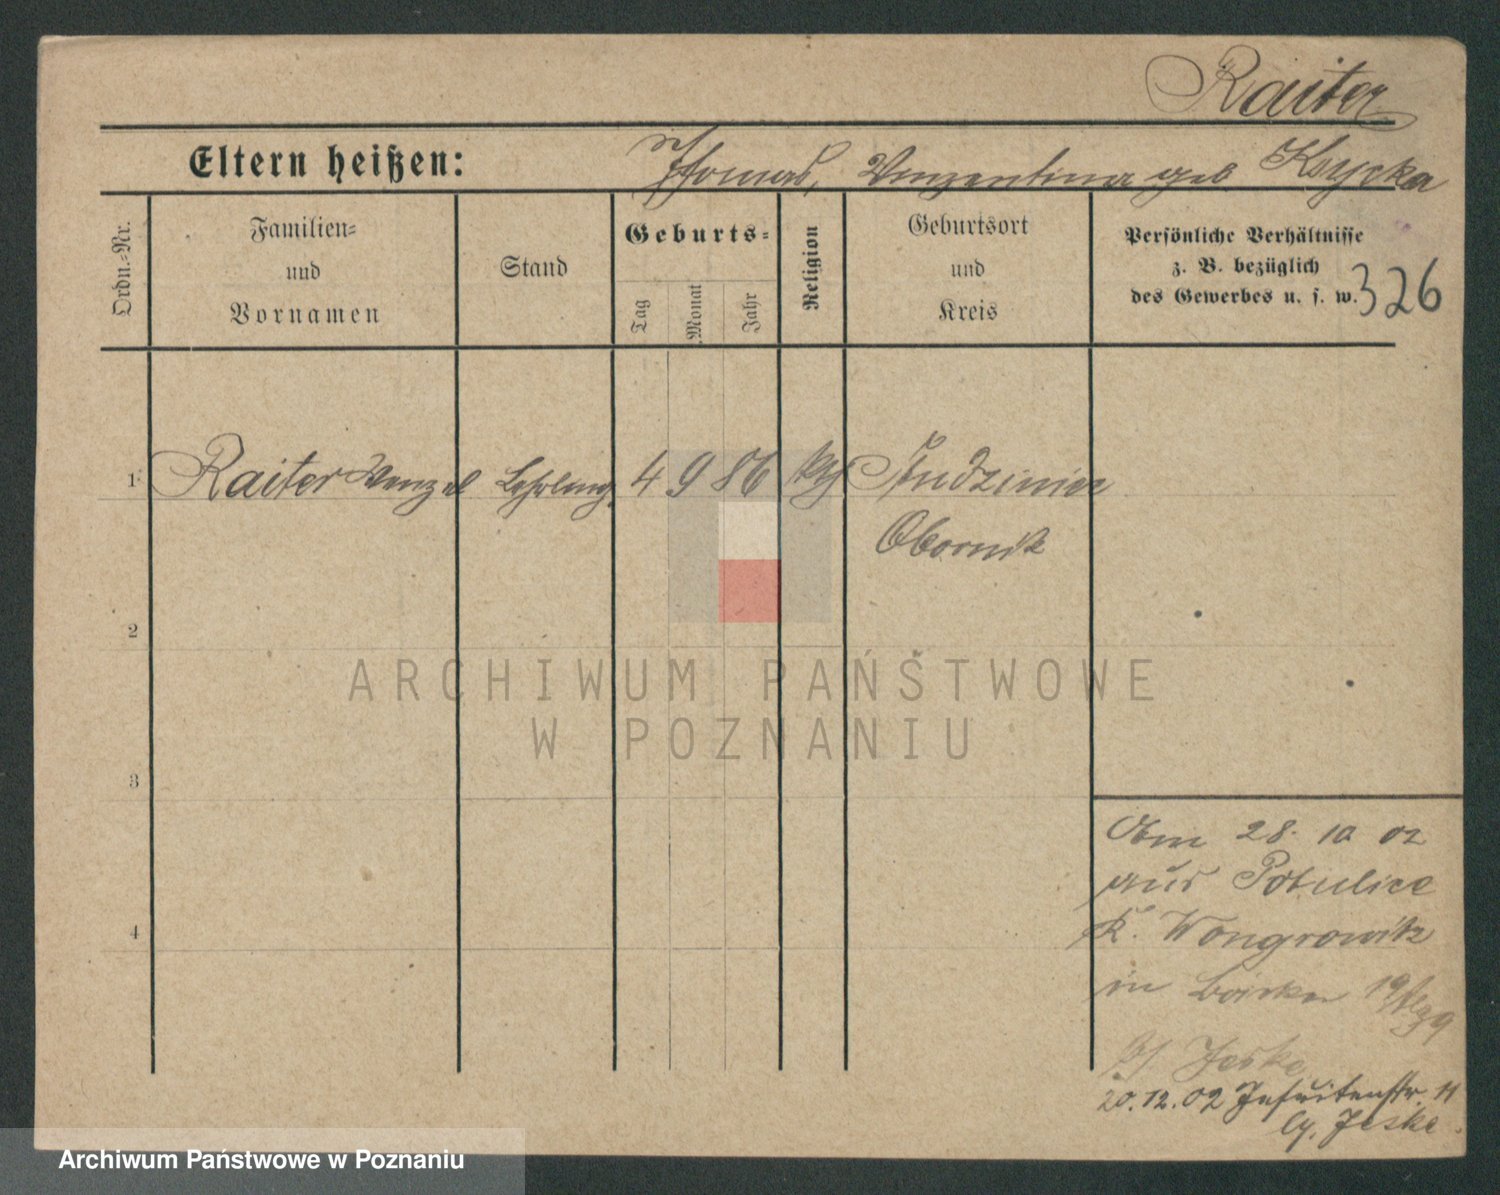 Raiter
Eltern heißen: Thomas, Vinzentina geb Ksycka
Ordn.-Nr.
Familien-
und
Vornamen
Stand
Geburts-
Tag
Monat
Jahr
Religion
Geburtsort
und
Kreis
Persönliche Verhältnisse
z. B. bezüglich
des Gewerbes u. s. w.
326
1 Raiter Wenzel Lehrling 4 9 86 kth Studzinice
Obornik
2
3
4
Am 28. 10 02
aus Potulice
K. Wongrowitz
in 19
b/ Jeske
20.12.02 Jesuitenstr. 11
b/ Jeske.
ARCHIWUM PAŃSTWOWE
W POZNANIU
Archiwum Państwowe w Poznaniu